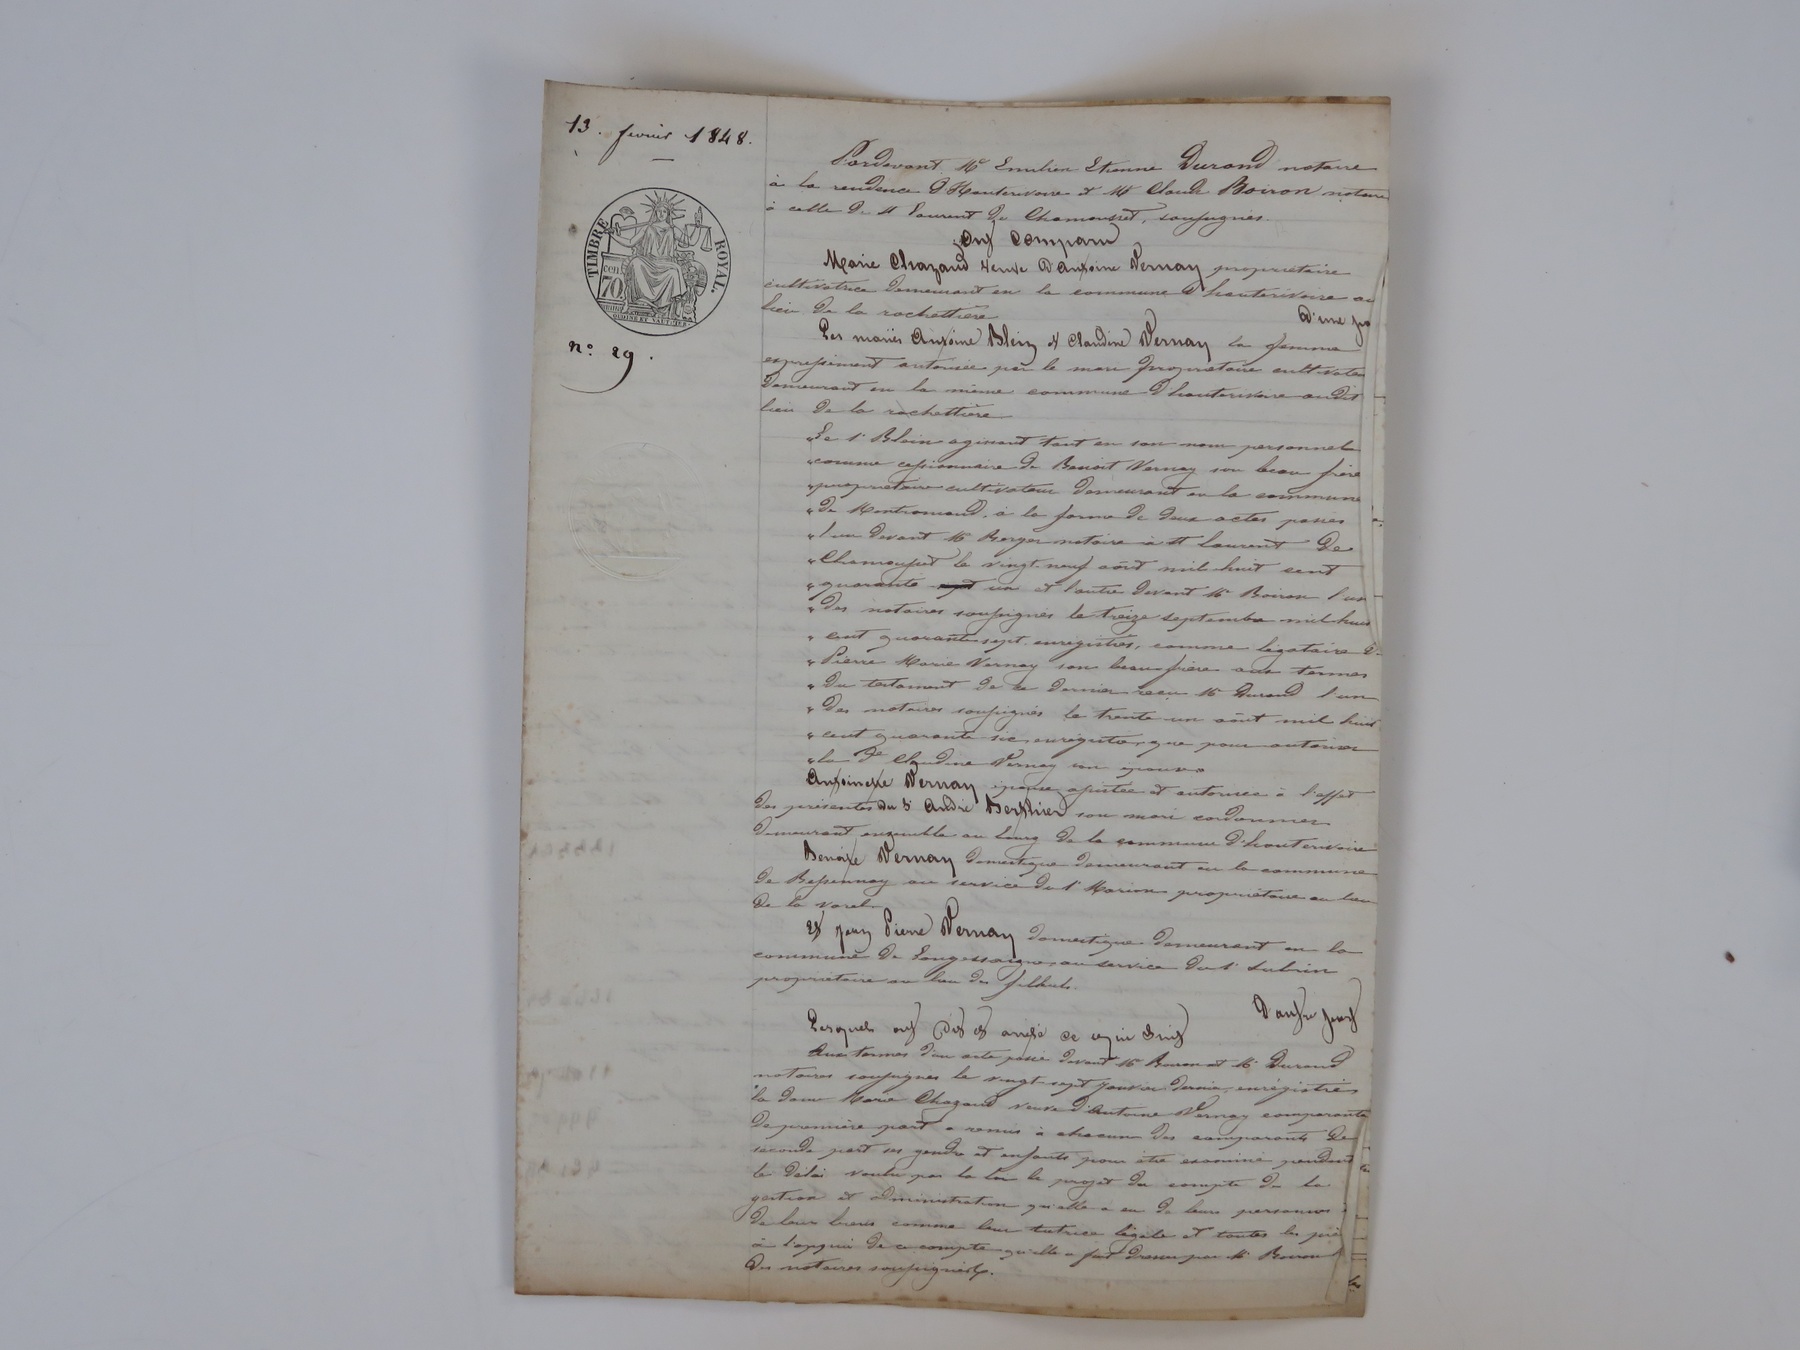 13. fevrier 1848.
TIMBRE ROYAL.
cen 70
n.° 29.
Pardevant Me Emilien Etienne Durand notaire
à la residence d'Hauterivoire et Me Claude Boiron notaire
à celle de St Laurent de Chamousset, soussignés.
Ont Comparu
Marie Chazaud veuve d'Antoine Vernay propriétaire
cultivatrice demeurant en la commune d'hauterivoire au
lieu de la rochettière
D'une pa
Les mariés Antoine Blein et Claudine Vernay la femme
expressement autorisée par le mari propriétaire cultivateur
demeurant en la même commune d'hauterivoire audit
lieu de la rochettière
" Le Sr Blein agissant tant en son nom personnel
" comme cessionnaire de Benoit Vernay son beau frère
" propriétaire cultivateur demeurant en la commune
" de Montromand, à la forme de deux actes passés
" l'un devant Me Berger notaire à St Laurent de
" Chamousset le vingt neuf août mil huit cent
" quarante un et l'autre devant Me Boiron l'un
" des notaires soussignés le treize septembre mil huit
" cent quarante sept enregistrés, comme légataire de
" Pierre Marie Vernay son beau frère aux termes
" du testament de ce dernier reçu Me Durand l'un
" des notaires soussignés le trente un août mil huit
" cent quarante six, enregistré, que pour autoriser
" la De Claudine Vernay son épouse
Antoinette Vernay épouse assistée et autorisée à l'effet
des présentes du Sr André Berthier son mari cordonnier
demeurant ensemble au bourg de la commune d'hauterivoire
Benoite Vernay domestique demeurant en la commune
de Bessennay au service du Sr Marion propriétaire au lieu
de la
Et Jean Pierre Vernay domestique demeurant en la
commune de Longessaigne, au service du Sr Subrin
propriétaire au lieu de
D'autre part
Lesquels ont dit et arrêté ce qui suit
Aux termes d'un acte passé devant Me Boiron et Me Durand
notaires soussignés le vingt sept janvier dernier, enregistré
la dame Marie Chazaud veuve d'Antoine Vernay comparante
de première part a remis à chacun des comparants de
seconde part ses gendre et enfants pour être examiné pendant
le délai voulu par la loi le projet du compte de la
gestion et administration qu'elle a eu de leurs personnes
de leur biens comme leur tutrice légale et toutes les piè
à l'appui de ce compte qu'elle a fait dresser par Me Boiron
des notaires soussignés.